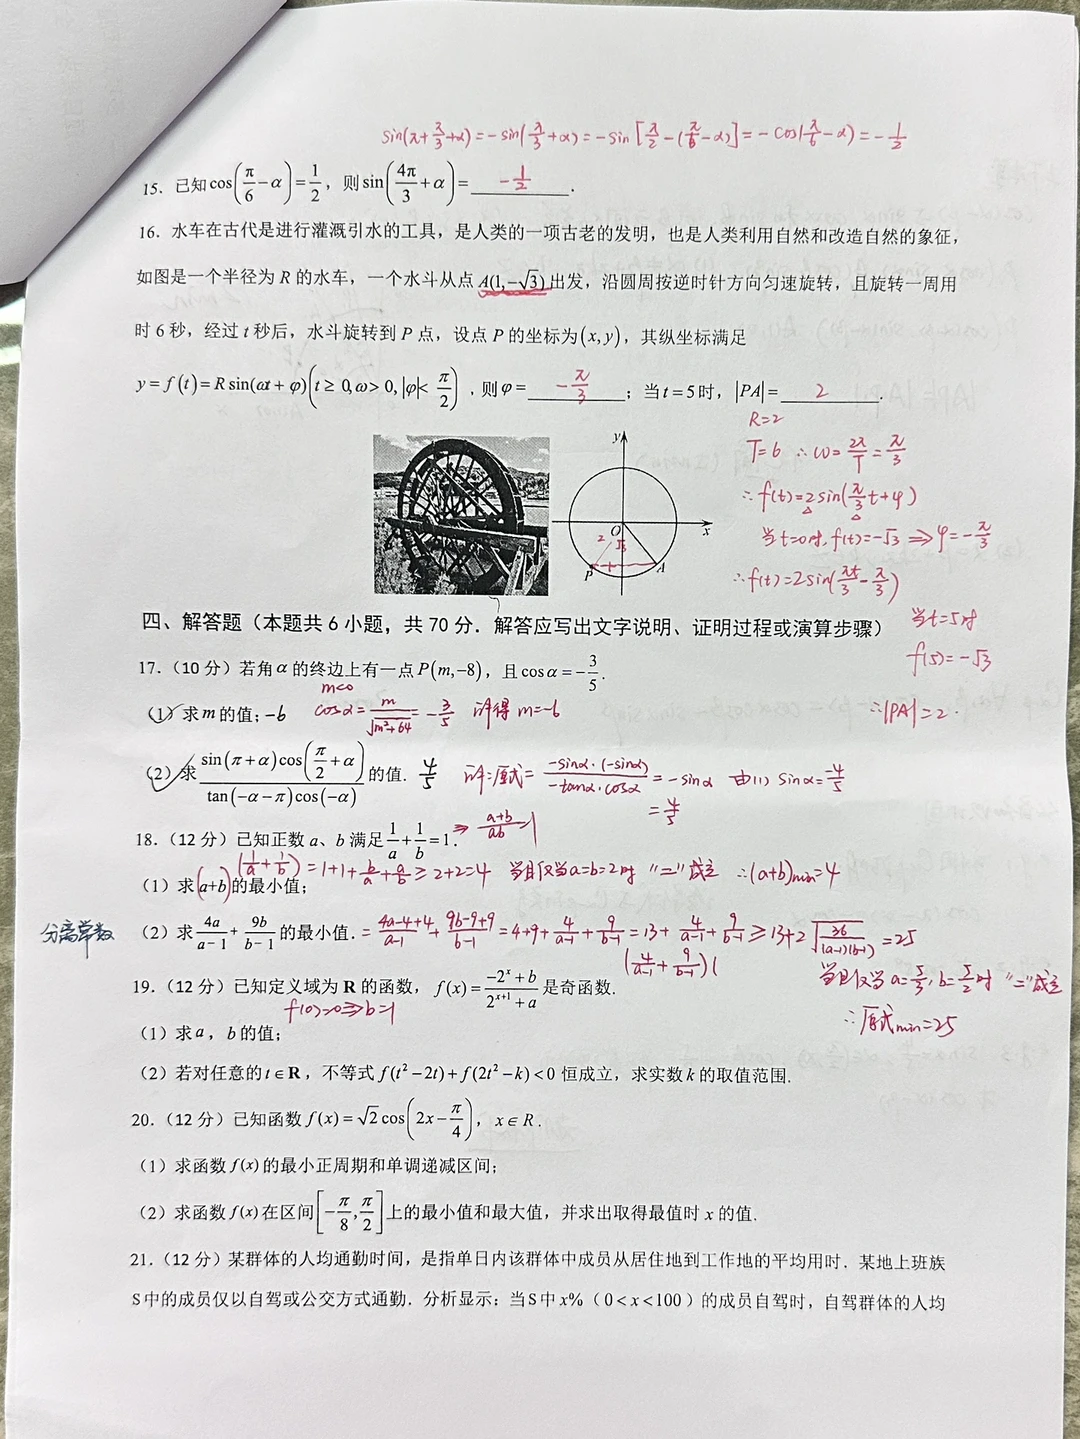 sin(π+π/3+α)=-sin(π/3+α)=-sin[π/2-(π/6-α)]=-cos(π/6-α)=-1/2
15. 已知cos(π/6-α)=1/2，则sin(4π/3+α)= -1/2 .
16. 水车在古代是进行灌溉引水的工具，是人类的一项古老的发明，也是人类利用自然和改造自然的象征，
如图是一个半径为 R 的水车，一个水斗从点 A(1,-√3) 出发，沿圆周按逆时针方向匀速旋转，且旋转一周用
时 6 秒，经过 t 秒后，水斗旋转到 P 点，设点 P 的坐标为(x,y)，其纵坐标满足
y=f(t)=Rsin(ωt+φ)(t≥0,ω>0,|φ|<π/2)，则φ= -π/3 ；当 t=5时，|PA|= 2 .
R=2
T=6 ∴ω=2π/T=π/3
∴f(t)=2sin(π/3t+φ)
当t=0时,f(t)=-√3⇒φ=-π/3
∴f(t)=2sin(πt/3-π/3)
当t=5时
f(5)=-√3
∴|PA|=2.
y
O
x
2
√3
1
P
A
四、解答题（本题共 6 小题，共 70 分．解答应写出文字说明、证明过程或演算步骤）
17.（10 分）若角α的终边上有一点P(m,-8)，且cosα=-3/5.
m<0
（1）求m的值; -6 cosα=m/√(m²+64)=-3/5 解得 m=-6
（2）求 sin(π+α)cos(π/2+α)/tan(-α-π)cos(-α) 的值. 4/5 解:原式=-sinα·(-sinα)/-tanα·cosα=-sinα 由(1) sinα=-4/5
=4/5
18.（12 分）已知正数 a、b 满足1/a+1/b=1. ⇒ a+b/ab=1
（1）求(a+b)的最小值; (1/a+1/b)=1+1+b/a+a/b≥2+2=4 当且仅当a=b=2时 "="成立 ∴(a+b)min=4
分离常数
（2）求4a/a-1+9b/b-1的最小值. =4a-4+4/a-1+9b-9+9/b-1=4+9+4/a-1+9/b-1=13+4/a-1+9/b-1≥13+2√36/(a-1)(b-1)=25
(4/a-1+9/b-1)(
当且仅当a=5/3,b=5/2时 "="成立
∴原式min=25
19.（12 分）已知定义域为 R 的函数，f(x)=-2^x+b/2^(x+1)+a是奇函数.
f(0)=0⇒b=1
（1）求a，b的值;
（2）若对任意的t∈R，不等式f(t²-2t)+f(2t²-k)<0 恒成立，求实数k的取值范围.
20.（12 分）已知函数f(x)=√2cos(2x-π/4)，x∈R.
（1）求函数f(x)的最小正周期和单调递减区间;
（2）求函数f(x)在区间[-π/8,π/2]上的最小值和最大值，并求出取得最值时x的值.
21.（12 分）某群体的人均通勤时间，是指单日内该群体中成员从居住地到工作地的平均用时．某地上班族
S中的成员仅以自驾或公交方式通勤．分析显示：当S中x%（0<x<100）的成员自驾时，自驾群体的人均